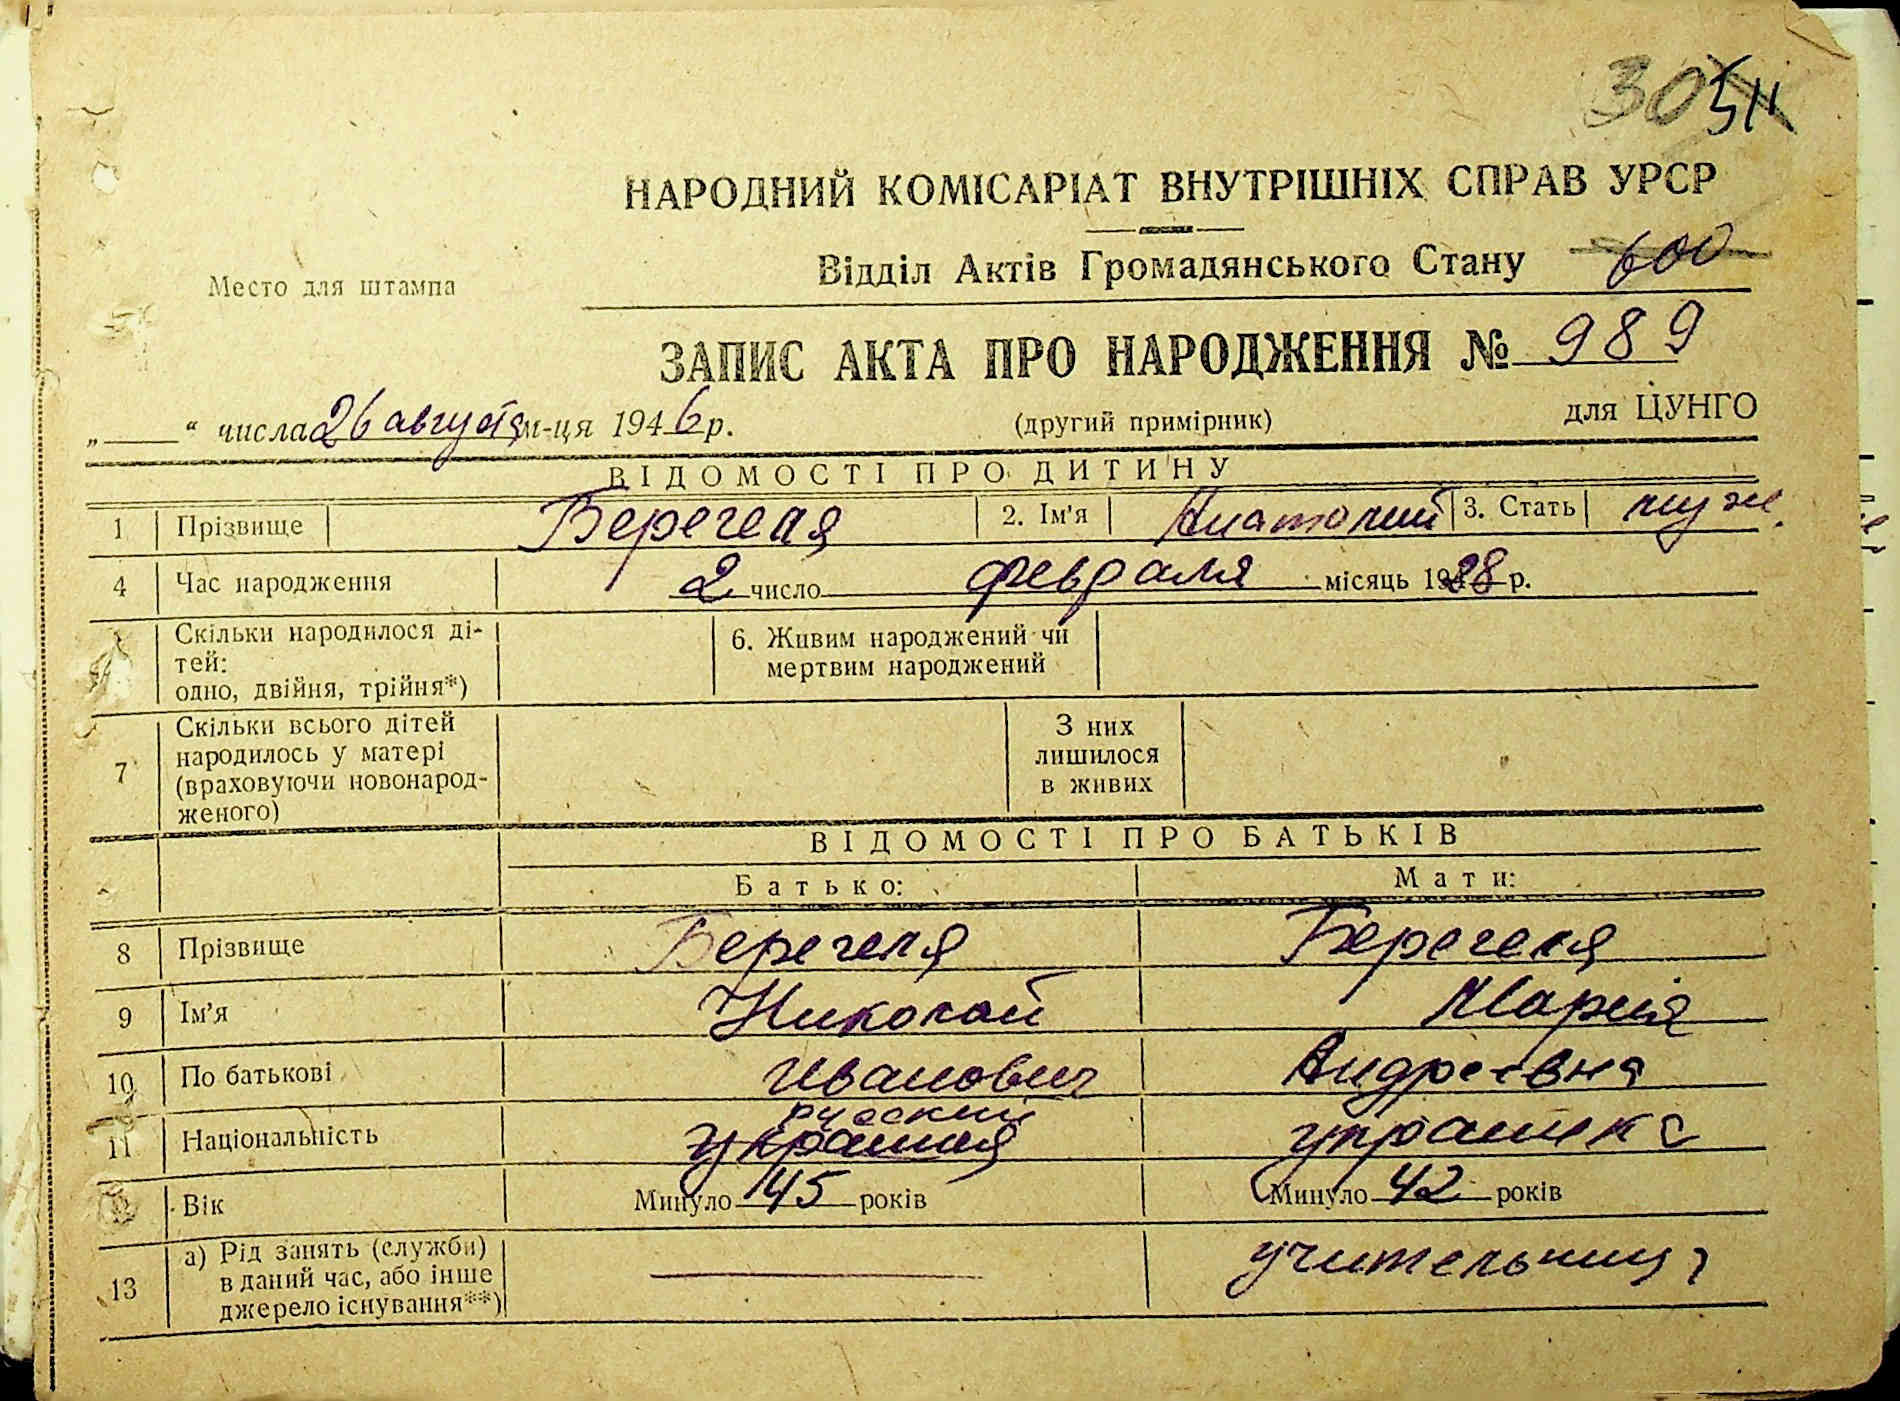 30 511
НАРОДНИЙ КОМІСАРІАТ ВНУТРІШНІХ СПРАВ УРСР
Место для штампа
Відділ Актів Громадянського Стану 600
ЗАПИС АКТА ПРО НАРОДЖЕННЯ № 989
„ “ числа 26 августа м-ця 1946 р. (другий примірник) для ЦУНГО
ВІДОМОСТІ ПРО ДИТИНУ
1 Прізвище Берегеля 2. Ім'я Анатолий 3. Стать муж.
4 Час народження 2 число февраля місяць 1928 р.
Скільки народилося ді-
тей:
одно, двійня, трійня*)
6. Живим народжений чи
мертвим народжений
7 Скільки всього дітей
народилось у матері
(враховуючи новонарод-
женого)
З них
лишилося
в живих
ВІДОМОСТІ ПРО БАТЬКІВ
Батько: Мати:
8 Прізвище Берегеля Берегеля
9 Ім'я Николай Мария
10 По батькові Иванович Андреевна
русский
11 Національність украинка
Вік Минуло 45 років Минуло 42 років
13 а) Рід занять (служби)
в даний час, або інше
джерело існування**)
учительница